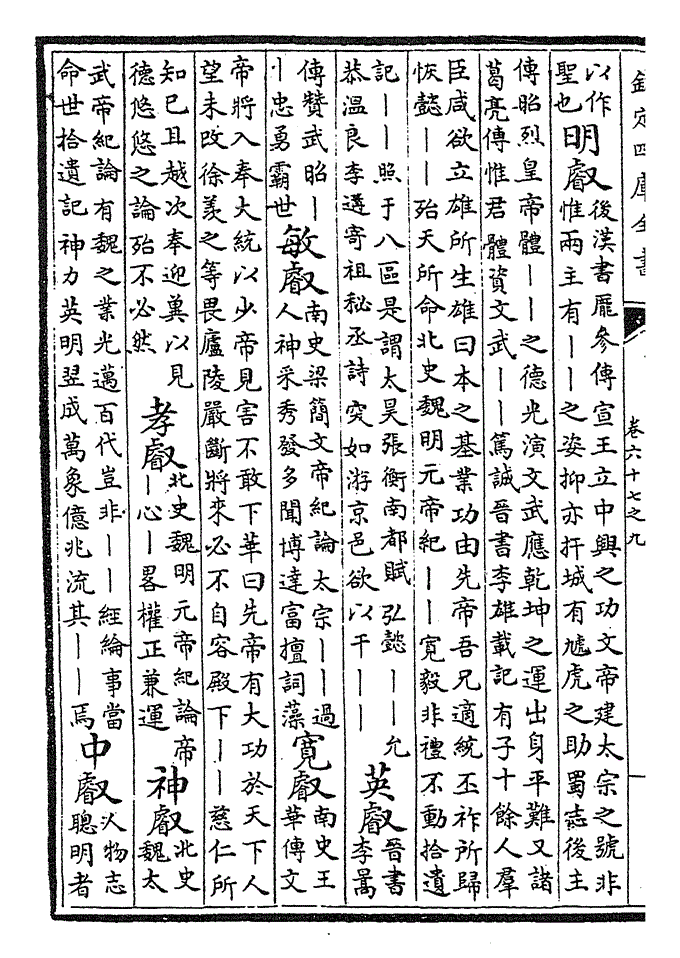 欽定四庫全書
卷六十七之九
以作
聖也
明叡
後漢書龐參傳宣王立中興之功文帝建太宗之號非
惟兩主有丨丨之姿抑亦扞城有虓虎之助蜀志後主
傳昭烈皇帝體丨丨之德光演文武應乾坤之運出身平難又諸
葛亮傳惟君體資文武丨丨篤誠晉書李雄載記有子十餘人羣
臣咸欲立雄所生雄曰本之基業功由先帝吾兄適統丕祚所歸
恢懿丨丨殆天所命北史魏明元帝紀丨丨寛毅非禮不動拾遺
記丨丨照于八區是謂太昊張衡南都賦弘懿丨丨允
恭溫良李遘寄祖秘丞詩突如游京邑欲以干丨丨
英叡
晉書
李暠
傳贊武昭丨
丨忠勇霸世
敏叡
南史梁簡文帝紀論太宗丨丨過
人神采秀發多聞博達富擅詞藻
寛叡
南史王
華傳文
帝將入奉大統以少帝見害不敢下華曰先帝有大功於天下人
望未改徐羨之等畏廬陵嚴斷將來必不自容殿下丨丨慈仁所
知已且越次奉迎冀以見
德悠悠之論殆不必然
孝叡
北史魏明元帝紀論帝
丨心丨畧權正兼運
神叡
北史
魏太
武帝紀論有魏之業光邁百代豈非丨丨經綸事當
命世拾遺記神力英明翌成萬象億兆流其丨丨焉
中叡
人物志
聰明者